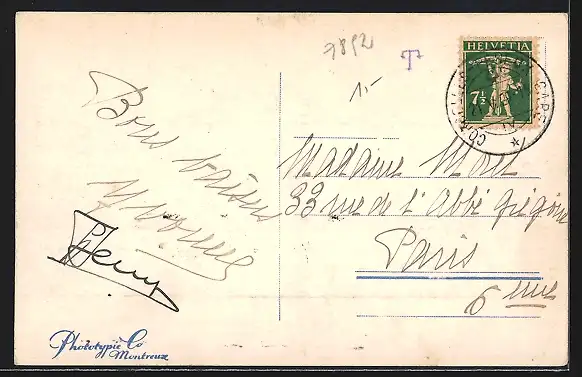 7892
T
1.-
HELVETIA
7½
Bons baisers
Yvonne
Madame Moll
33 rue de l'Abbé Grégoire
Paris
6 ème
Phototypie Co
Montreux